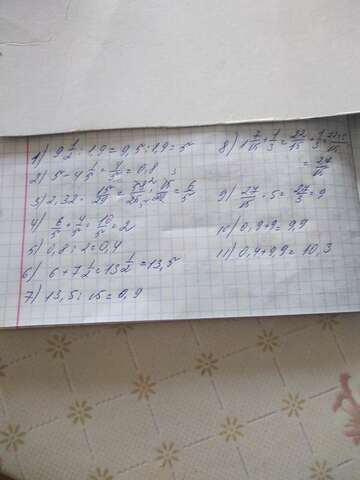 1) 9 1/2 : 1,9 = 9,5 : 1,9 = 5
2) 5 - 4 1/5 = 4/5 = 0,8
3) 2,32 · 15/29 = 6/5
4) 6/5 + 4/5 = 10/5 = 2
5) 0,8 : 2 = 0,4
6) 6 + 7 1/2 = 13 1/2 = 13,5
7) 13,5 : 15 = 0,9
8) 1 7/15 + 1/3 = 22/15 + 1/3 = 22+5/15 = 27/15
9) 27/15 · 5 = 27/3 = 9
10) 0,9 + 9 = 9,9
11) 0,4 + 9,9 = 10,3